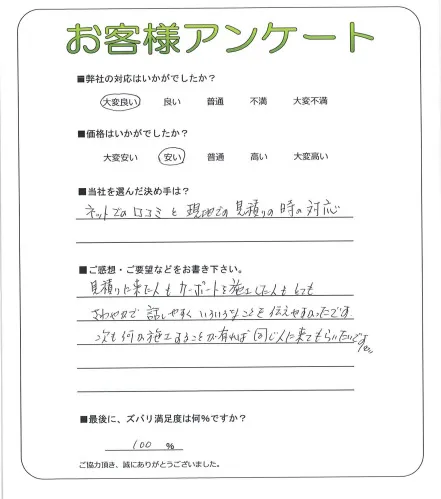 お客様アンケート
■弊社の対応はいかがでしたか?
大変良い 良い 普通 不満 大変不満
■価格はいかがでしたか?
大変安い 安い 普通 高い 大変高い
■当社を選んだ決め手は?
ネットでの口コミと現地での見積りの時の対応
■ご感想・ご要望などをお書き下さい。
見積りに来た人もカーポートを施工した人もとても
さわやかで話しやすくいろいろなことを伝えやすかったです。
次も何か施工することが有れば同じ人に来てもらいたいです
■最後に、ズバリ満足度は何%ですか?
100 %
ご協力頂き、誠にありがとうございました。